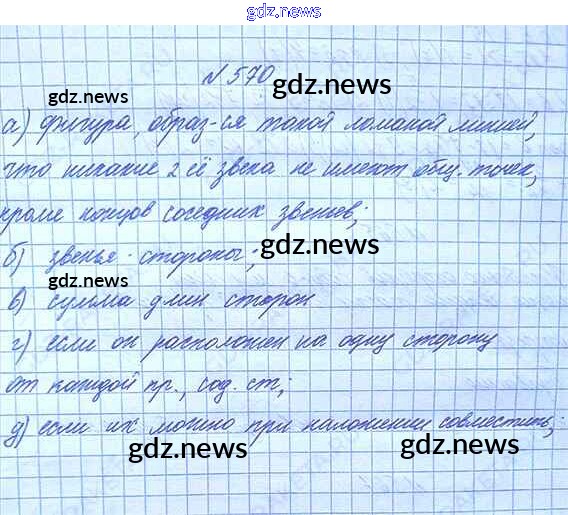 gdz.news
№ 570
gdz.news
gdz.news
а) фигура, образ-ся такой ломаной линией,
gdz.news
что никакие 2 её звена не имеют общ. точек,
кроме концов соседних звеньев;
gdz.news
б) звенья - стороны;
gdz.news
в) сумма длин сторон
г) если он расположен на одну сторону
от каждой пр., сод. ст;
д) если их можно при наложении совместить;
gdz.news
gdz.news